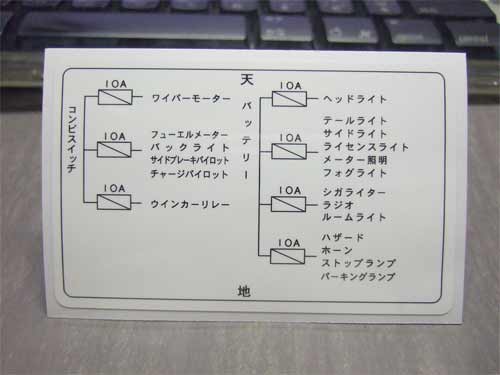 天
コンビスイッチ
10A
ワイパーモーター
10A
フューエルメーター
バックライト
サイドブレーキパイロット
チャージパイロット
10A
ウインカーリレー
バッテリー
10A
ヘッドライト
10A
テールライト
サイドライト
ライセンスライト
メーター照明
フォグライト
10A
シガライター
ラジオ
ルームライト
10A
ハザード
ホーン
ストップランプ
パーキングランプ
地